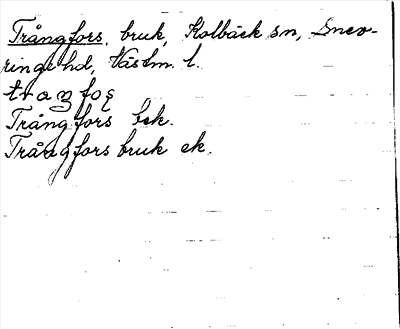 Trångfors, bruk, Kolbäck sn, Snev-
ringe hd, Västm. l.
Trångfors bek.
Trångfors bruk ek.